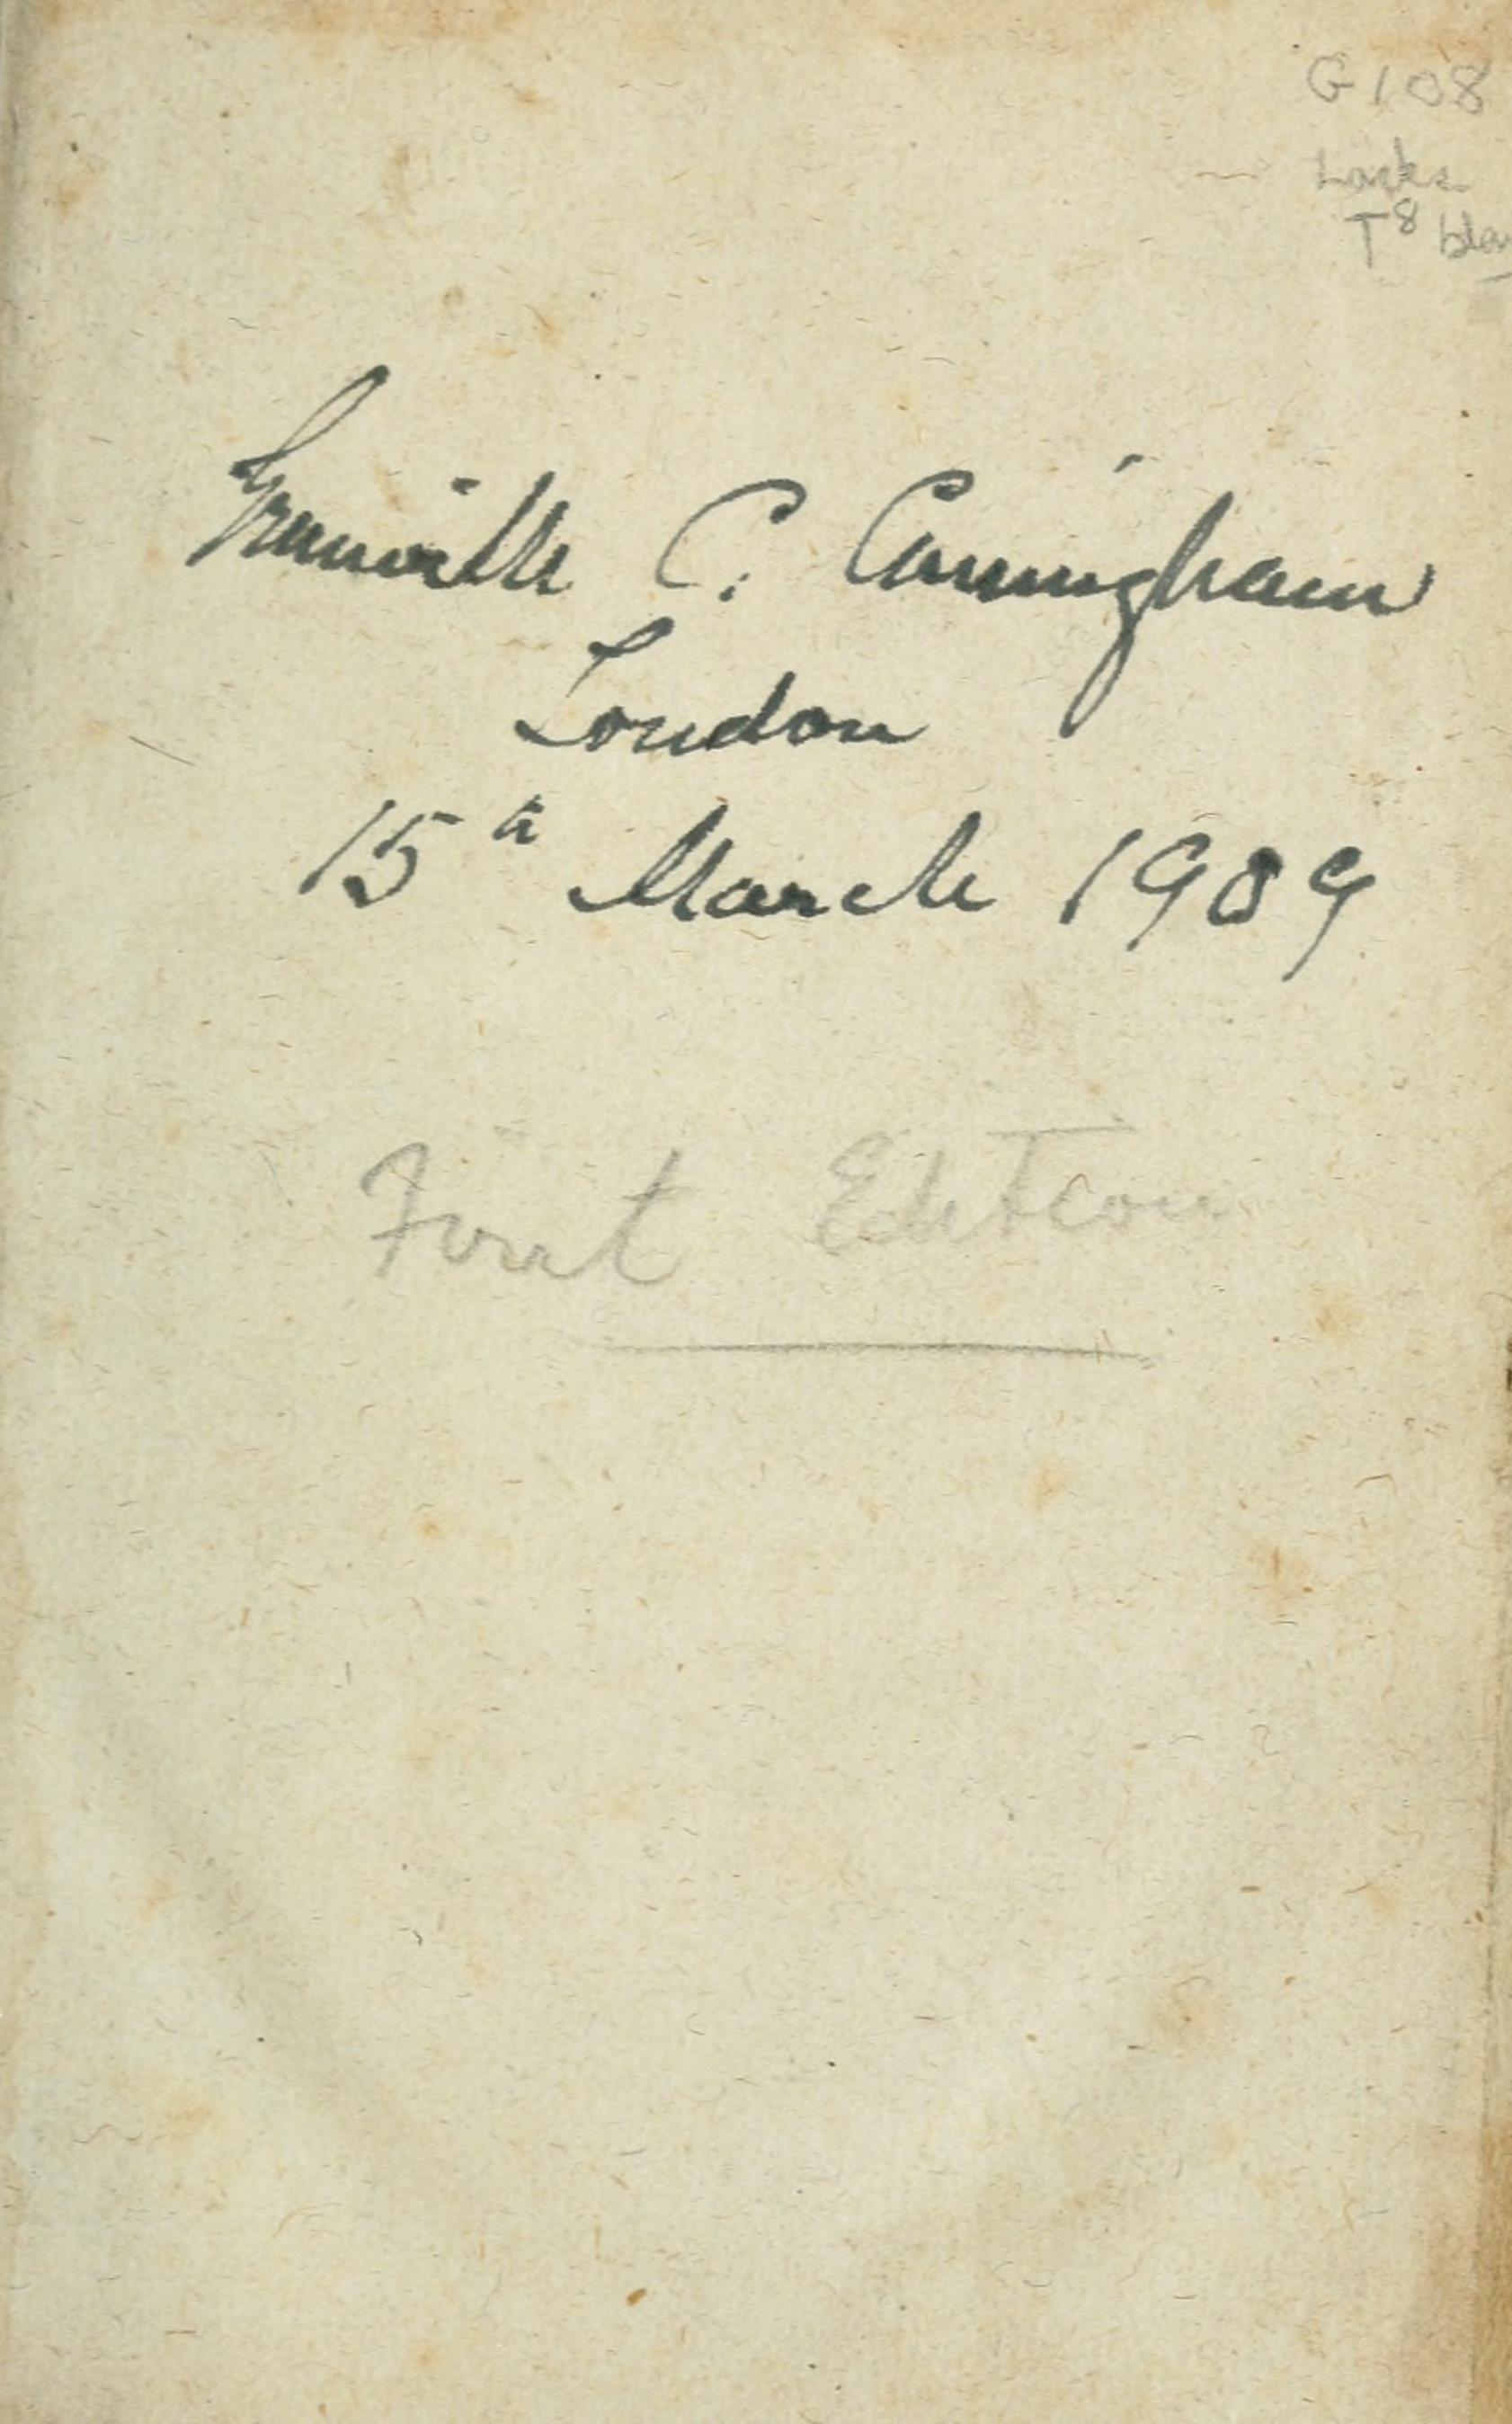 G108
Lacks
T⁸ bla
Granville C. Cuningham
London
15th March 1909
First Edition